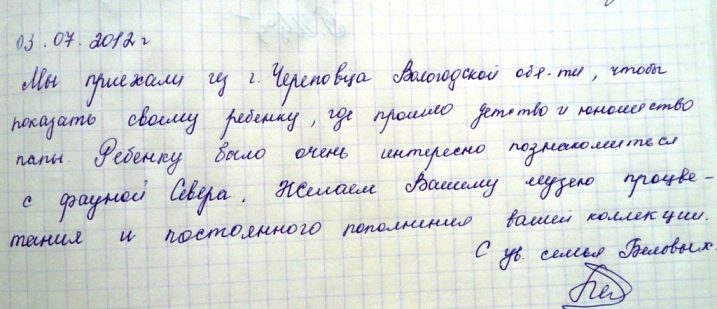 03.07.2012г
Мы приехали из г. Череповца Вологодской обл-ти, чтобы
показать своему ребенку, где прошло детство и юношество
папы. Ребенку было очень интересно познакомиться
с фауной Севера. Желаем Вашему музею процве-
тания и постоянного пополнения вашей коллекции.
С ув. семья Беловых.